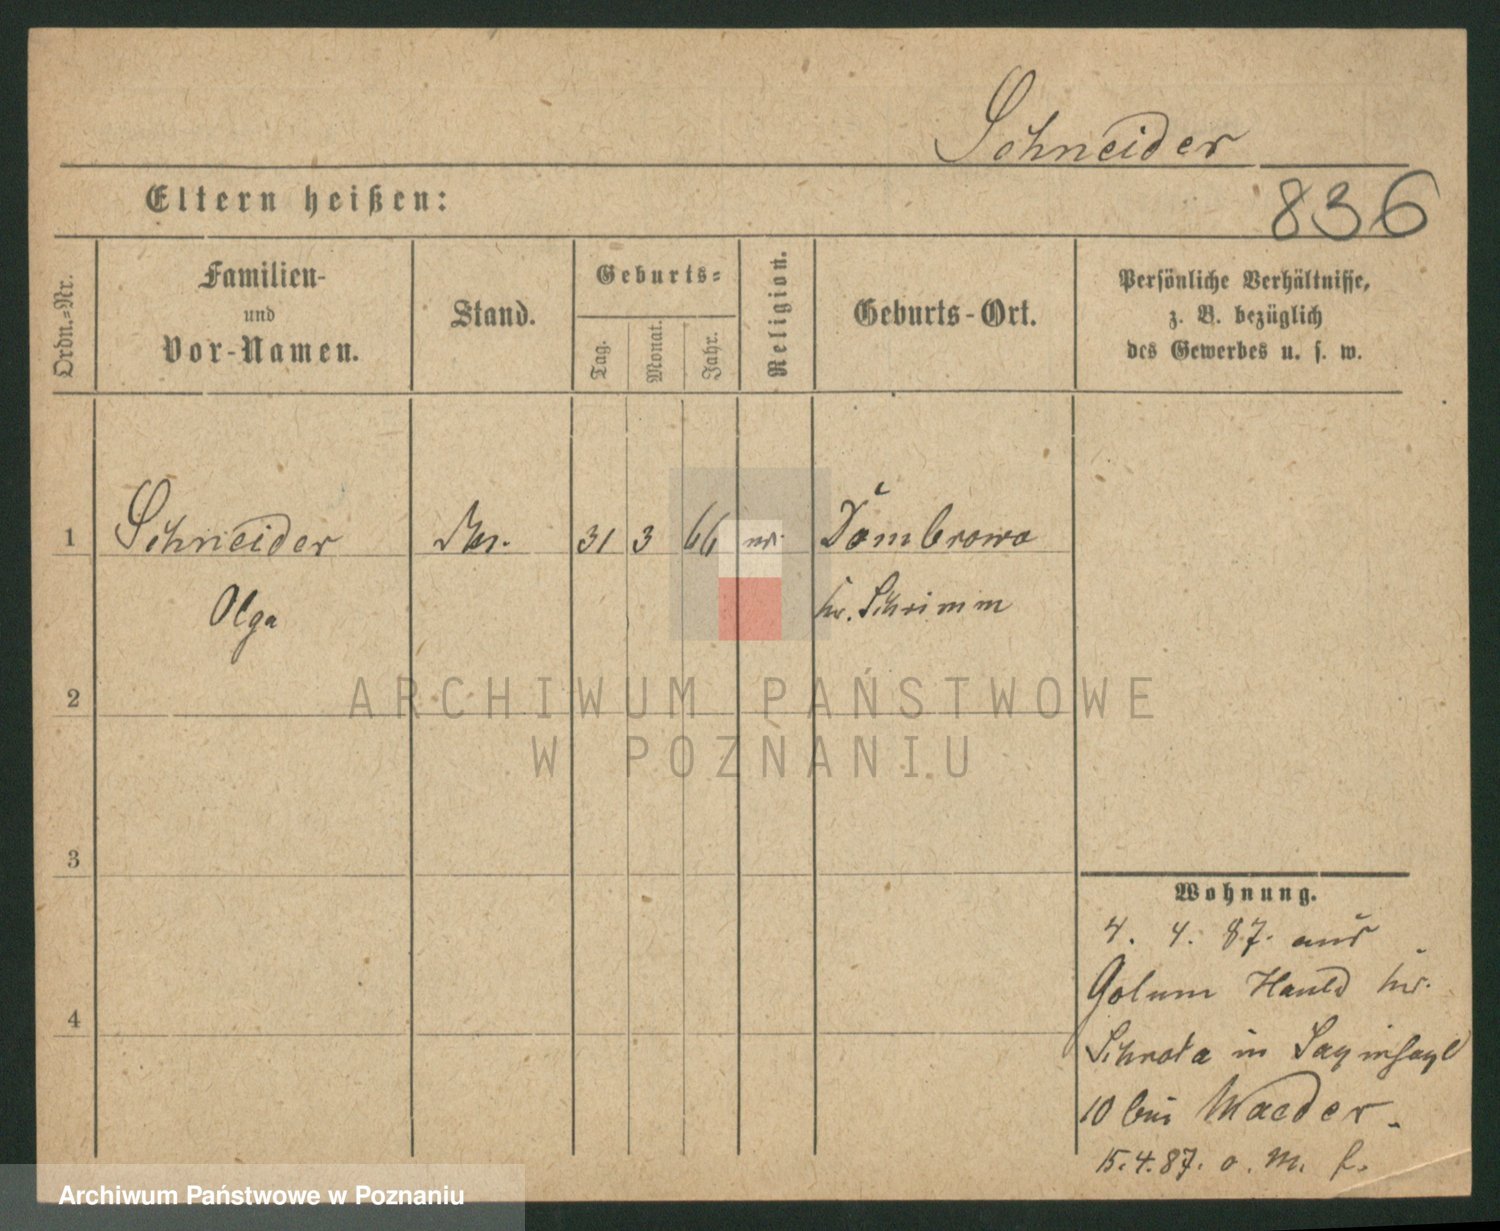 Schneider
Eltern heißen:
836
Ordn.-Nr.
Familien-
und
Vor-Namen.
Stand.
Geburts-
Tag.
Monat.
Jahr.
Religion.
Geburts-Ort.
Persönliche Verhältnisse,
z. B. bezüglich
des Gewerbes u. s. w.
1
Schneider
31
3
66
Dombrowo
Olga
kr. Schrimm
2
ARCHIWUM PAŃSTWOWE
W POZNANIU
3
Wohnung.
4. 4. 87. aus
Golum Hauld kr.
4
Schroda in
10 bei Maeder.
15.4.87. o. M. f.
Archiwum Państwowe w Poznaniu